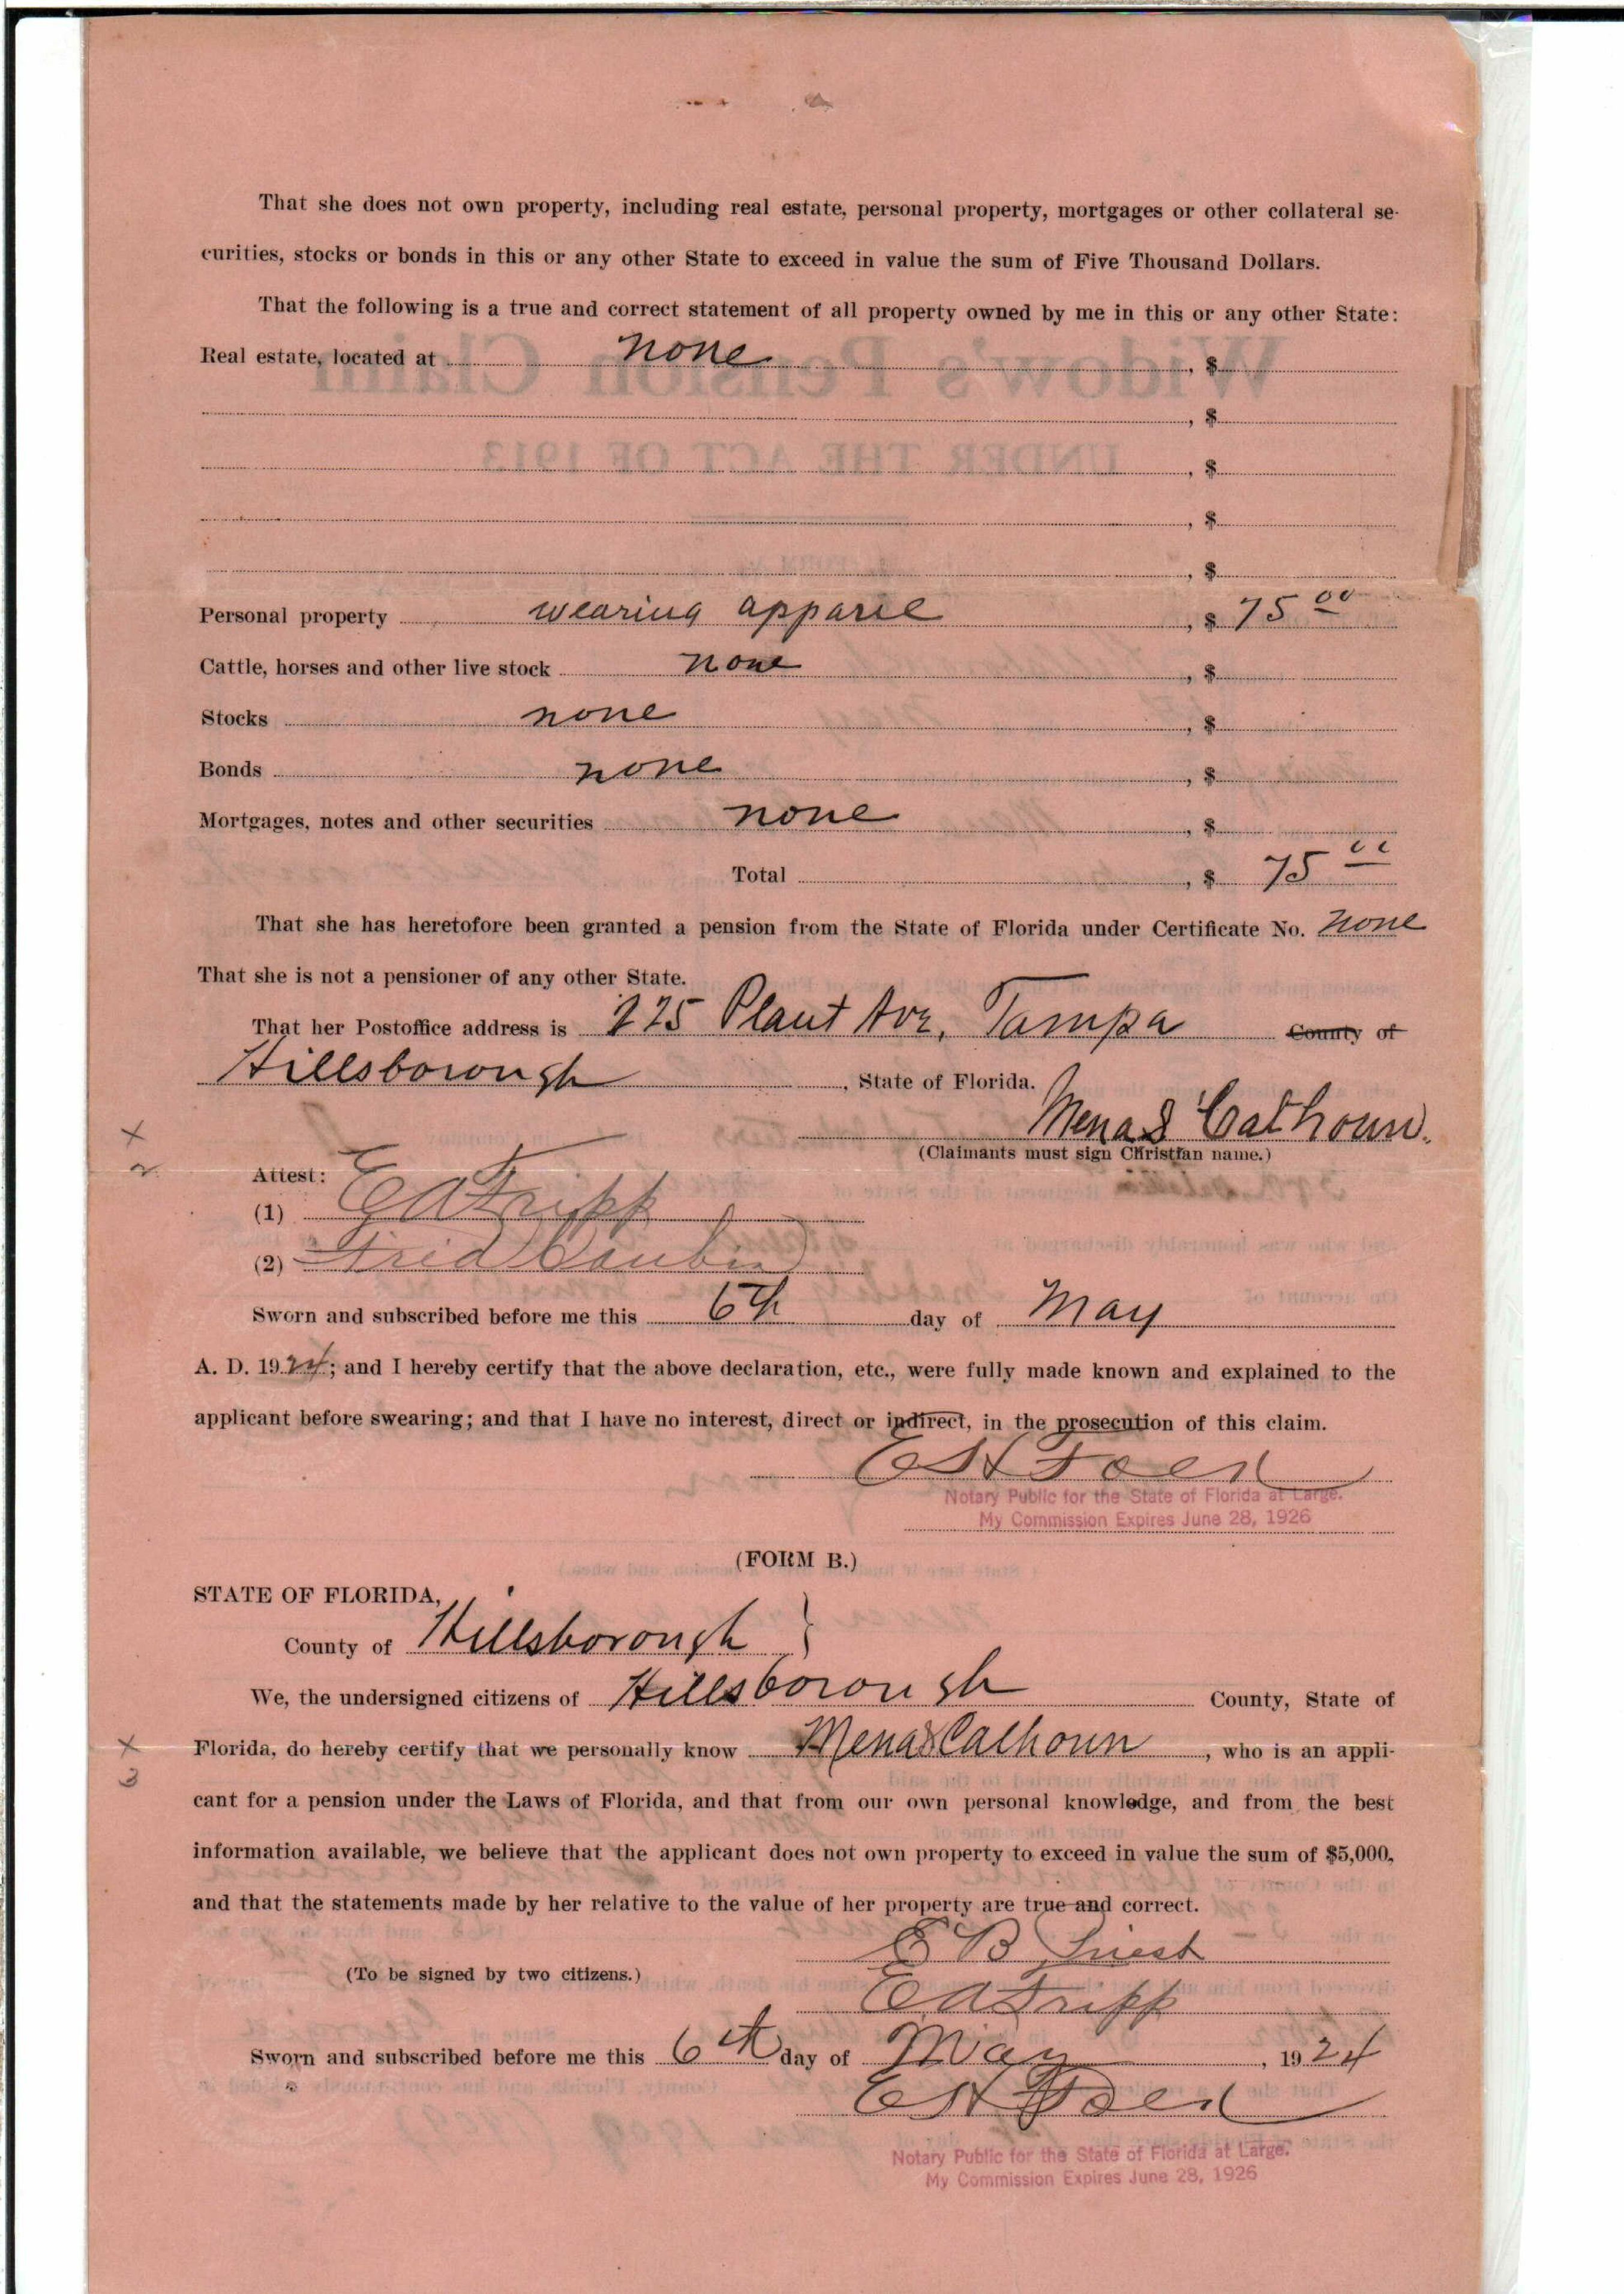 That she does not own property, including real estate, personal property, mortgages or other collateral se-
curities, stocks or bonds in this or any other State to exceed in value the sum of Five Thousand Dollars.
That the following is a true and correct statement of all property owned by me in this or any other State:
Real estate, located at none, $
, $
, $
, $
, $
Personal property wearing apparel, $ 75 00
Cattle, horses and other live stock none, $
Stocks none, $
Bonds none, $
Mortgages, notes and other securities none, $
Total, $ 75 00
That she has heretofore been granted a pension from the State of Florida under Certificate No. none
That she is not a pensioner of any other State.
That her Postoffice address is 225 Plant Ave, Tampa County of
Hillsborough, State of Florida.
Mena S Calhoun.
(Claimants must sign Christian name.)
x
2
Attest:
(1) E A Tripp
(2)
Sworn and subscribed before me this 6th day of May
A. D. 1924; and I hereby certify that the above declaration, etc., were fully made known and explained to the
applicant before swearing; and that I have no interest, direct or indirect, in the prosecution of this claim.
Notary Public for the State of Florida at Large.
My Commission Expires June 28, 1926
(FORM B.)
STATE OF FLORIDA,
County of Hillsborough }
We, the undersigned citizens of Hillsborough County, State of
x
3
Florida, do hereby certify that we personally know Mena S Calhoun, who is an appli-
cant for a pension under the Laws of Florida, and that from our own personal knowledge, and from the best
information available, we believe that the applicant does not own property to exceed in value the sum of $5,000,
and that the statements made by her relative to the value of her property are true and correct.
E B
(To be signed by two citizens.)
E A Tripp
Sworn and subscribed before me this 6th day of May, 1924
Notary Public for the State of Florida at Large.
My Commission Expires June 28, 1926